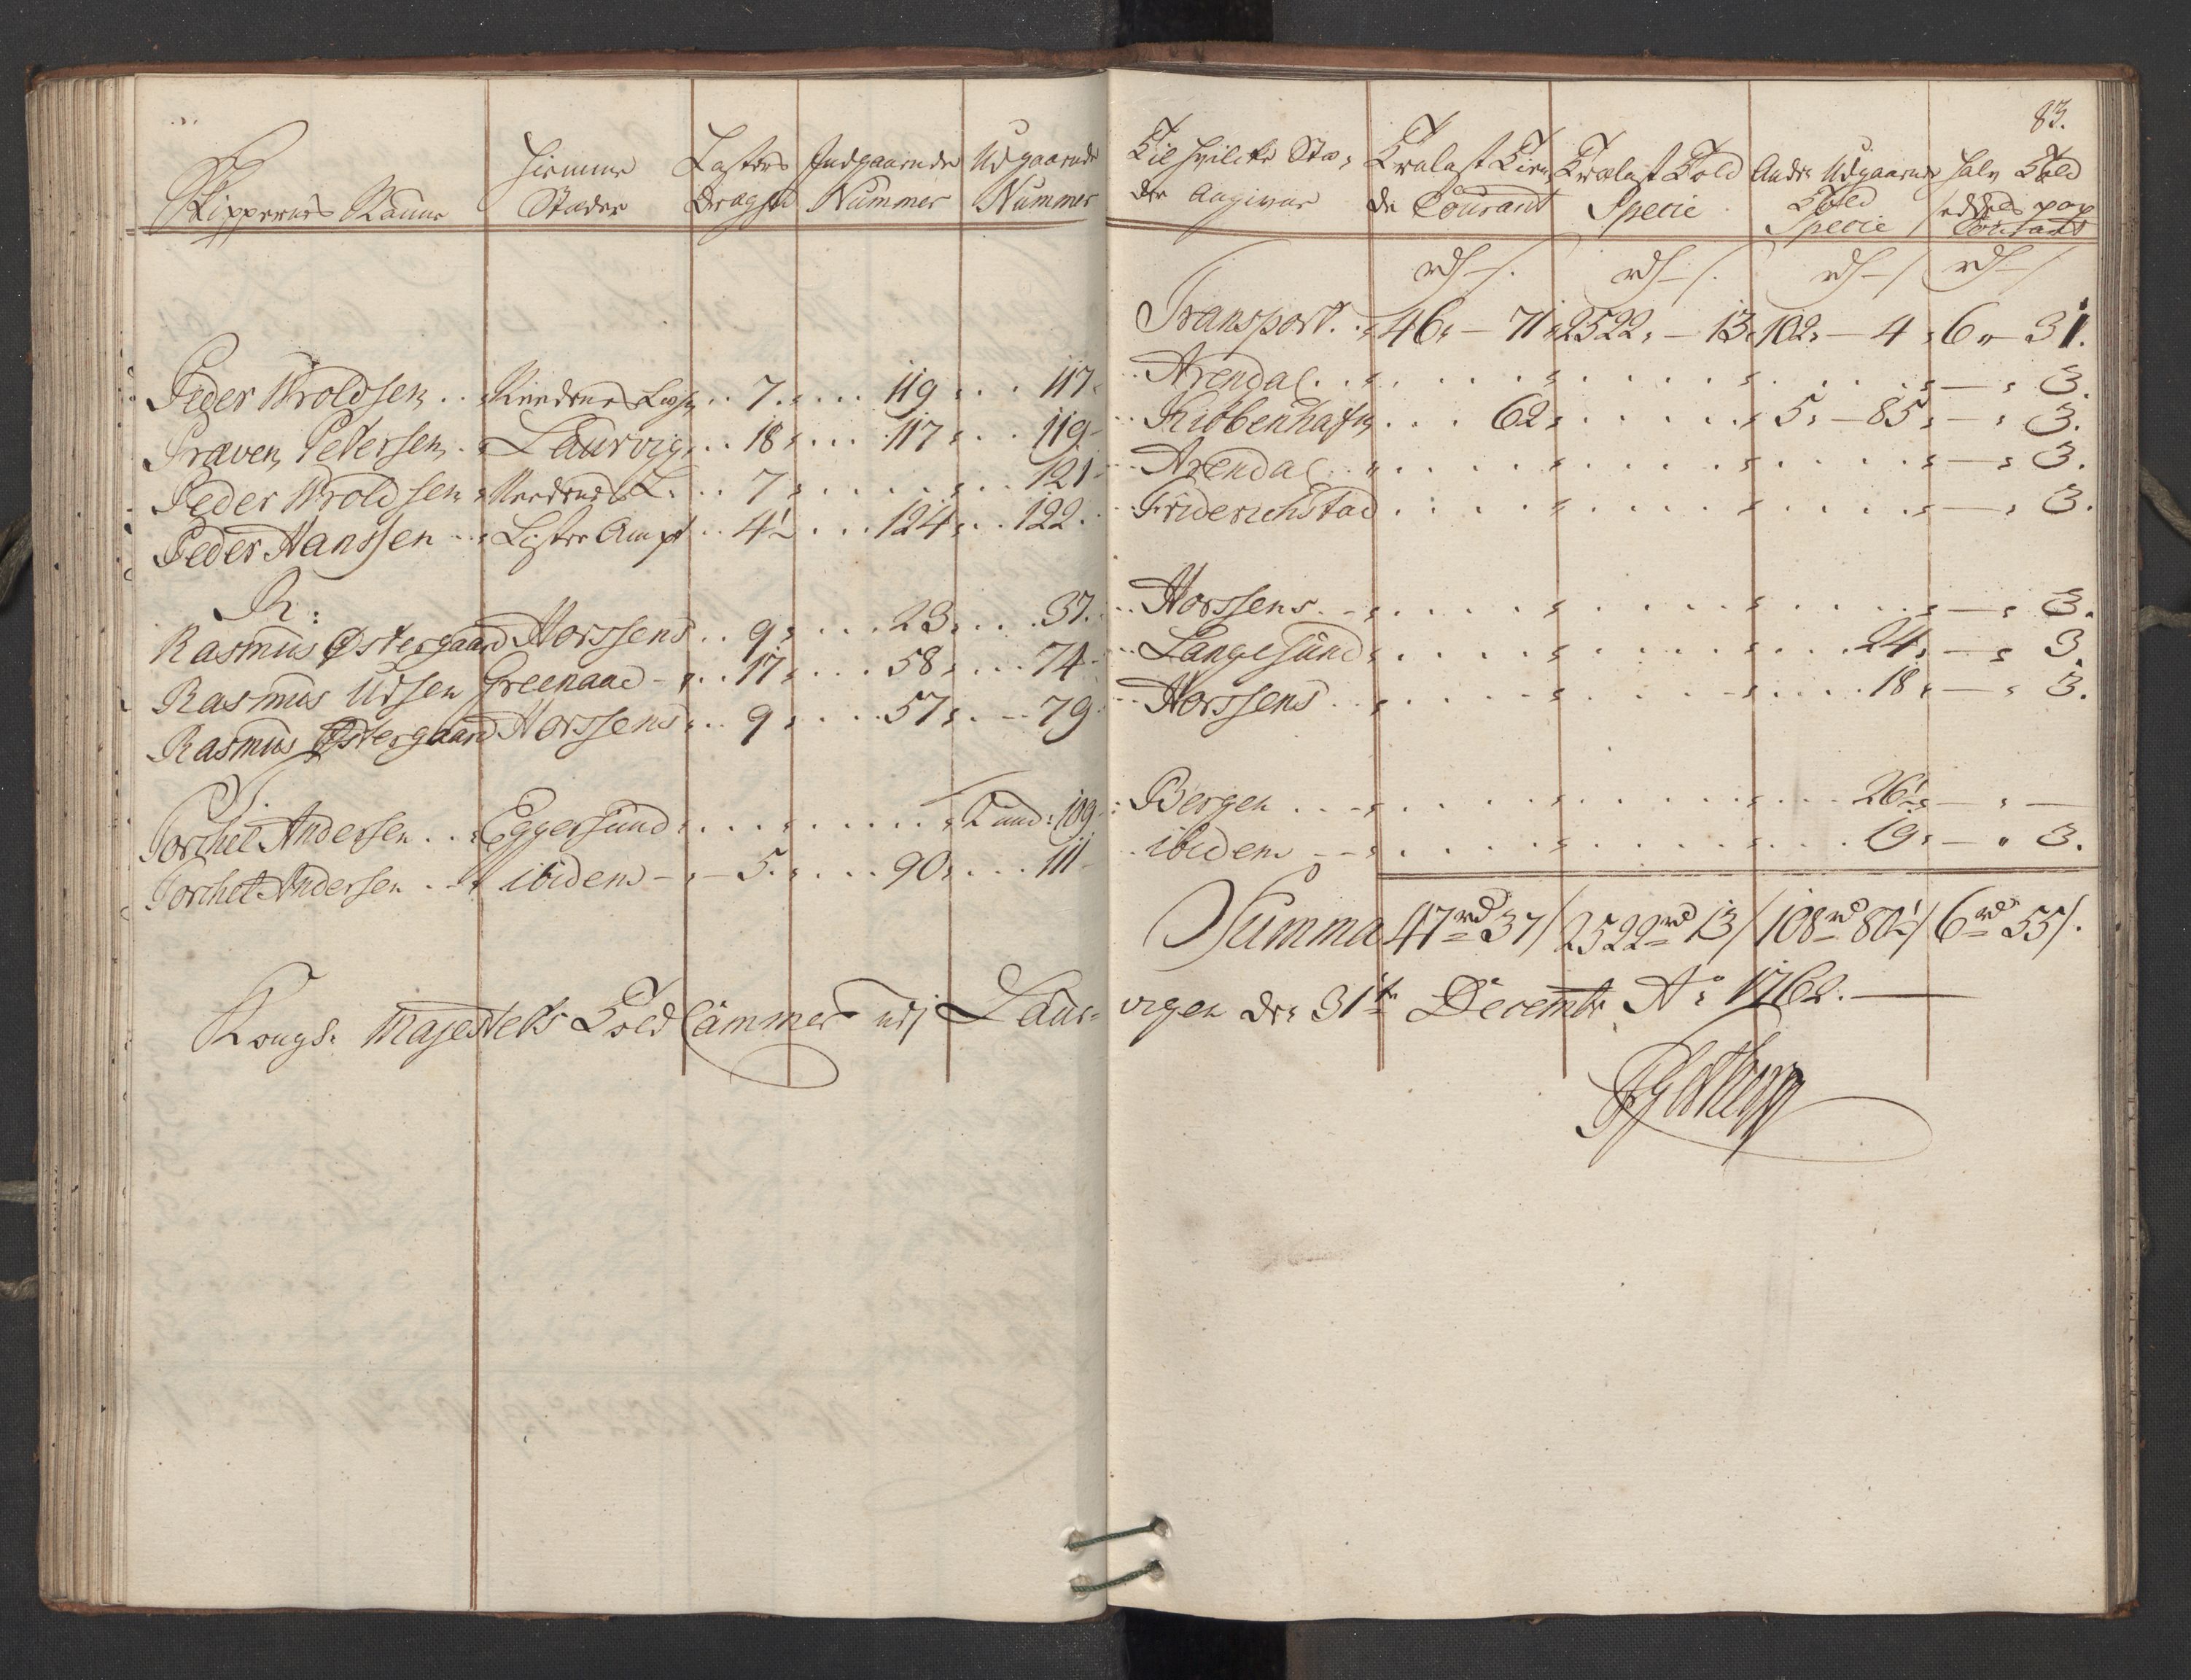 83.
Skippernes Naune | Hiemme Stæder | Læsters Drægt | Indgaaende Nummer | Udgaaende Nummer | Til hvilcke Stæ- der Angivne | Trælast Tien- de Courant | Trælast Told Specie | Andre Udgaaende Told Specie | halv Told Courant
rd - s. | rd - s. | rd - s | rd - s
Transport. 46. - 71 2522. - 13. 102. - 4. 6. - 31.
Peder Wroldsen 7. 119 117 Arendal - 3.
Præven Petersen Laurvig 18. 117. 119 Kibbenhafn 62. 5. - 85. - 3.
Peder Wroldsen 7. 121 Arendal - 3.
Peder Hanssen Lister Ampt 4½ 124. 122. Friderichstad - 3.
R:
Rasmus Østergaard Horssens 9. 23. 37. Horssens - 3.
Rasmus Udsen Greenaae 17. 58. 74 Langesund 24. - 3.
Rasmus Østergaard Horssens 9. 57. 79 Horssens 18. - 3.
T.
Torchel Andersen Eggersund 109 Bergen 26½ - -
Torchel Andersen ibidem 5. 90. 111 ibidem 19. - 3.
Summa 47rd 37s 2522rd 13s 108rd 80½s 6rd 55s.
Kongs: Majestets Told Cammer udj Laur-
vigen den 31te Decembr Ao 1762.